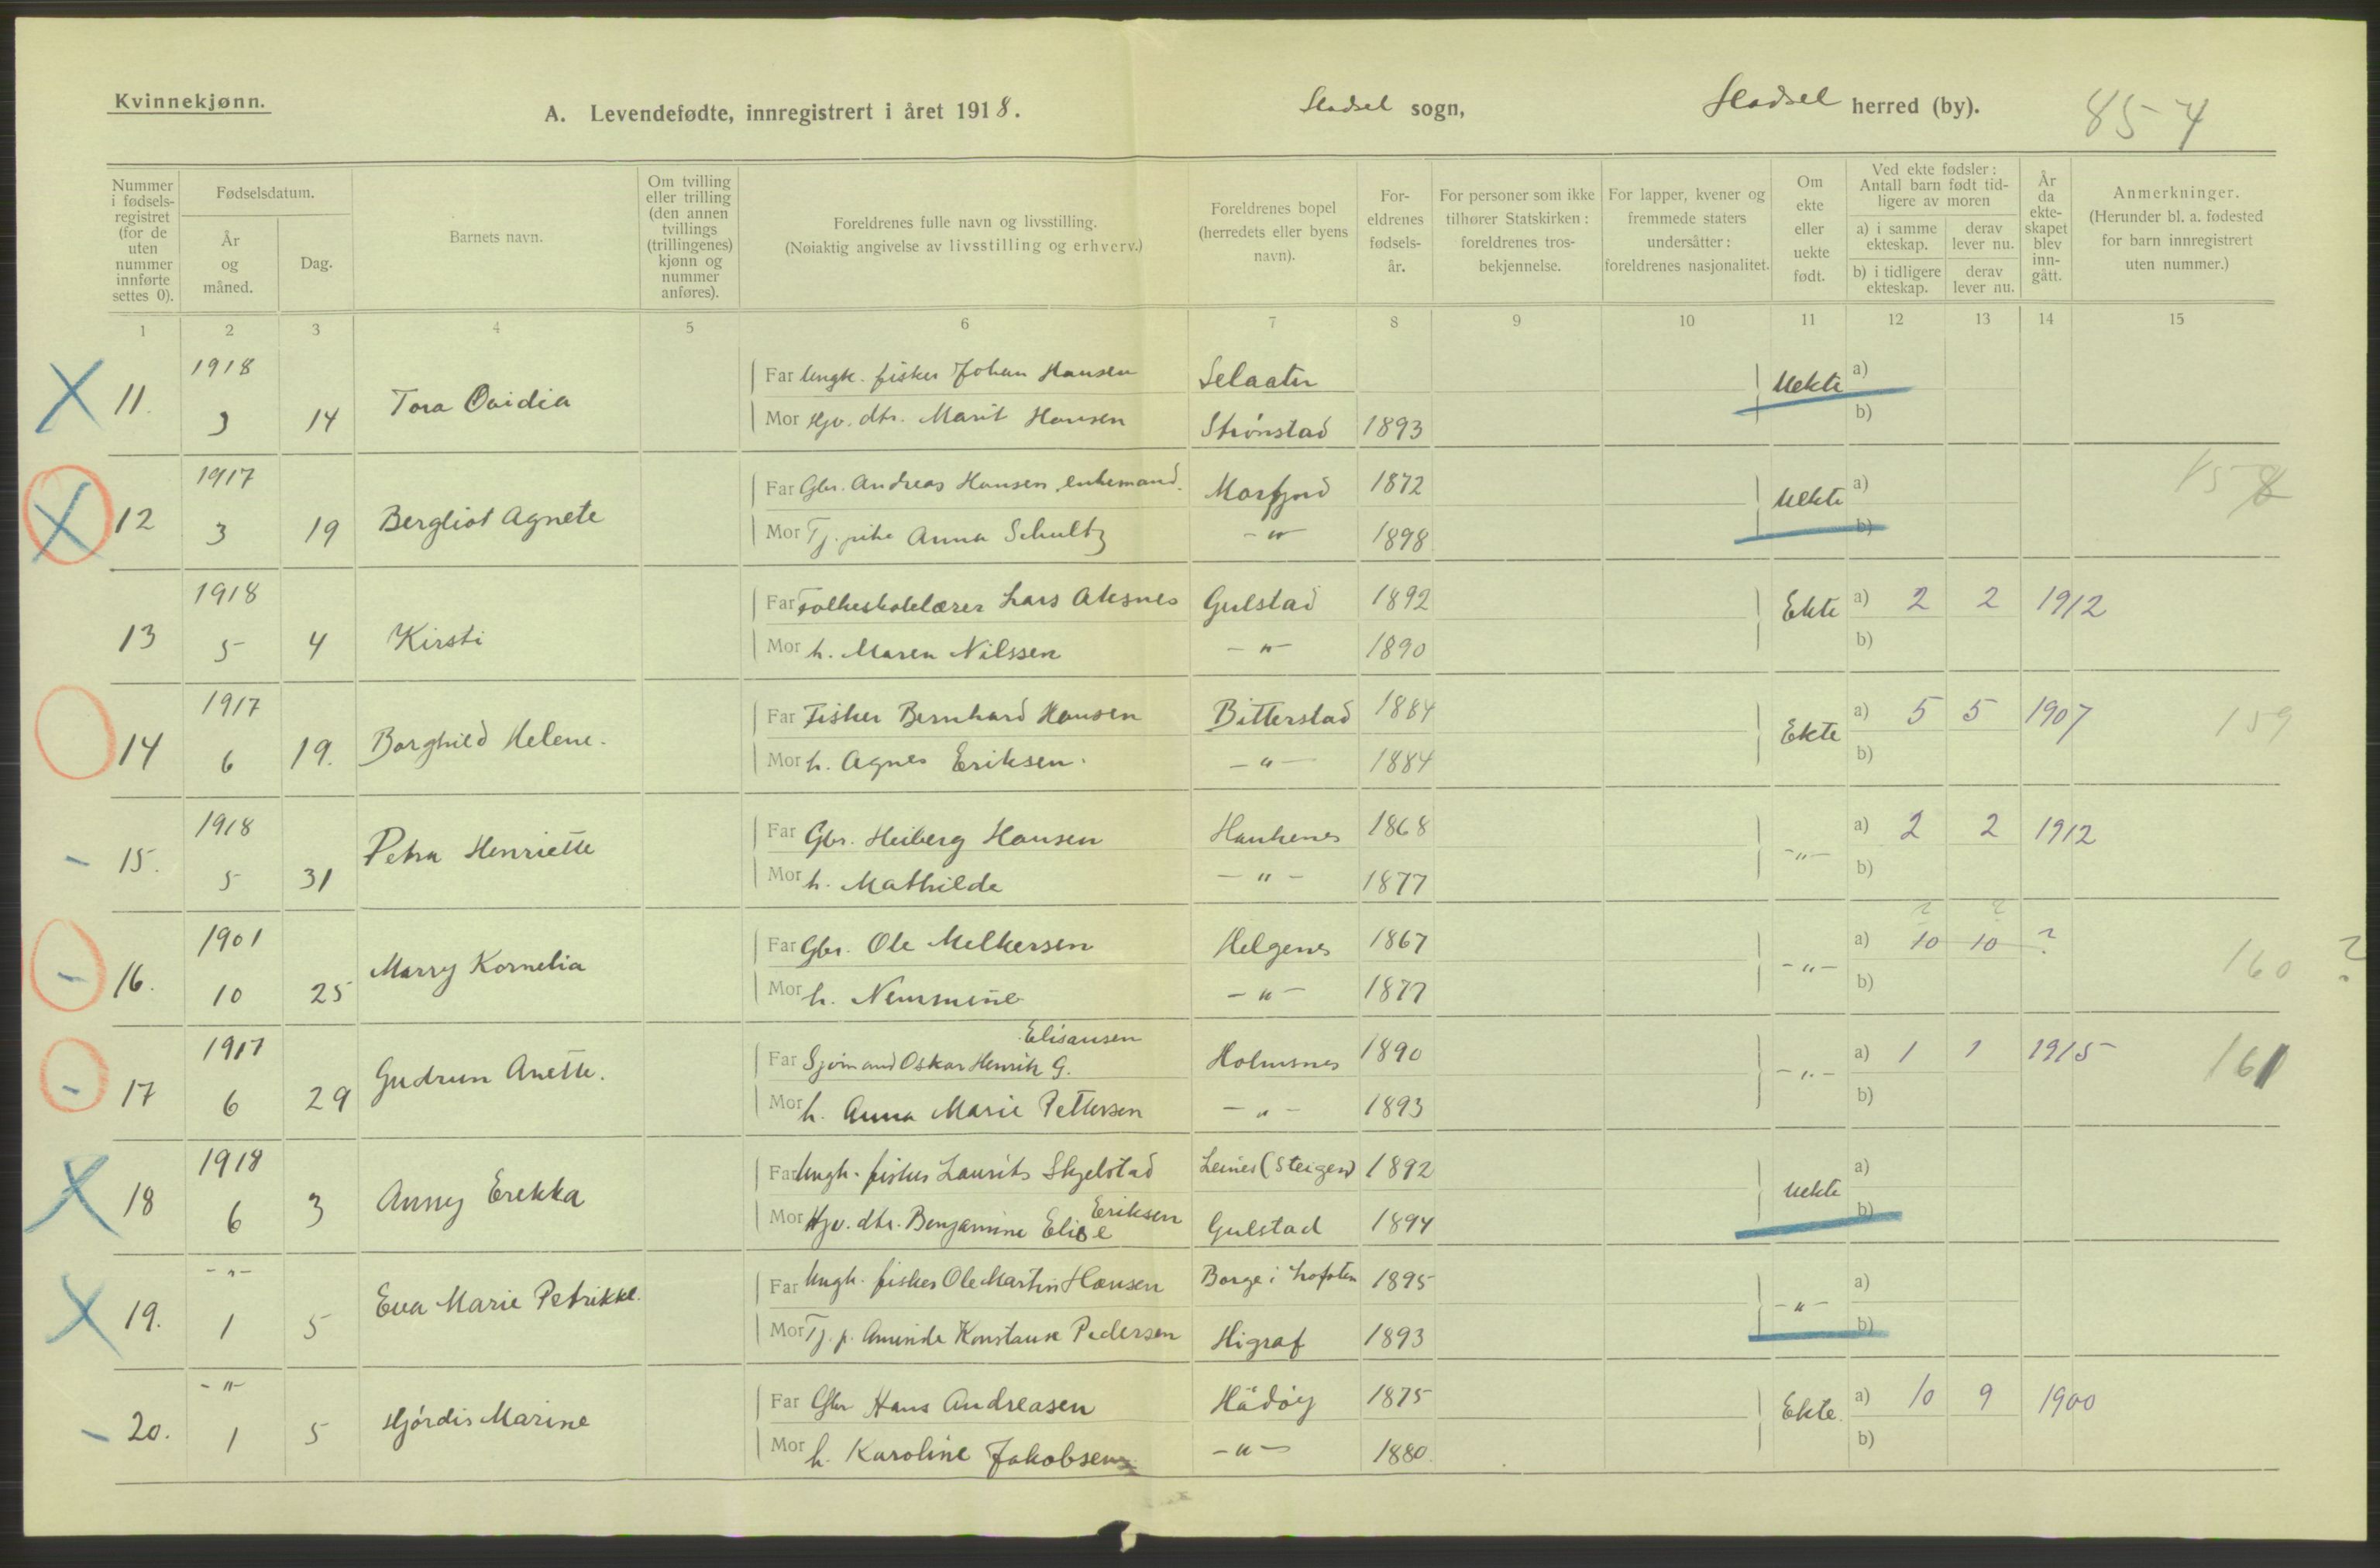 Kvinnekjønn.
A. Levendefødte, innregistrert i året 1918.
Hadsel sogn,
Hadsel herred (by).
85 4
Nummer i fødsels- registret (for de uten nummer innførte settes 0).
Fødselsdatum.
År og måned.
Dag.
Barnets navn.
Om tvilling eller trilling (den annen tvillings (trillingenes) kjønn og nummer anføres).
Foreldrenes fulle navn og livsstilling.
(Nøiaktig angivelse av livsstilling og erhverv.)
Foreldrenes bopel (herredets eller byens navn).
For- eldrenes fødsels- år.
For personer som ikke tilhører Statskirken: foreldrenes tros- bekjennelse.
For lapper, kvener og fremmede staters undersåtter: foreldrenes nasjonalitet.
Om ekte eller uekte født.
Ved ekte fødsler: Antall barn født tid- ligere av moren
a) i samme ekteskap.
derav lever nu.
b) i tidligere ekteskap.
derav lever nu.
År da ekte- skapet blev inn- gått.
Anmerkninger.
(Herunder bl. a. fødested for barn innregistrert uten nummer.)
1 2 3 4 5 6 7 8 9 10 11 12 13 14 15
1918
Far Ungk. fisker Johan Hansen
Uekte a)
11. 3 14 Tora Ovidia
Mor Gjv. dtr. Marit Hansen Strønstad 1893 b)
1917
Far Gbr. Andreas Hansen, enkemand. Morfjord 1872 Uekte a) 158
12 3 19 Bergliot Agnete
Mor Tj. pike Anna Schultz -"- 1898 b)
1918
Far Folkeskolelærer Lars Aksnes Gulstad 1892 Ekte a) 2 2 1912
13 5 4 Kirsti
Mor h. Maren Nilssen -"- 1890 b)
1917
Far Fisker Bernhard Hansen Bitterstad 1884 Ekte a) 5 5 1907 159
14 6 19. Borghild Helene.
Mor h. Agnes Eriksen. -"- 1884 b)
1918
Far Gbr. Heiberg Hansen Haukenes 1868 -"- a) 2 2 1912
15. 5 31 Petra Henriette
Mor h. Mathilde -"- 1877 b)
? ?
1901
Far Gbr. Ole Melkersen Helgenes 1867 -"- a) 10 10 ? 160 ?
16. 10 25 Marry Kornelia
Mor h. -"- 1877 b)
Elisausen
1917
Far Sjømand Oskar Henrik G. Holmsnes 1890 -"- a) 1 1 1915 161
17 6 29 Gudrun Anette.
Mor h. Anna Marie Pettersen -"- 1893 b)
1918
Far Ungk. fisker Laurits Skjelstad Leines (Steigen) 1892 Uekte a)
18 6 3 Anny Erekka
Eriksen
Mor Gjv. dtr. Benjamine Elise Gulstad 1894 b)
-"-
Far Ungk. fisker Ole Martin Hansen Borge i Lofoten 1895 -"- a)
19. 1 5 Eva Marie Petrikke.
Mor Tj. p. Aminda Konstanse Pedersen Higraf 1893 b)
-"-
Far Gbr Hans Andreasen Hadøy 1875 Ekte. a) 10 9 1900
20. 1 5 Hjördis Marine
Mor h. Karoline Jakobsen -"- 1880. b)